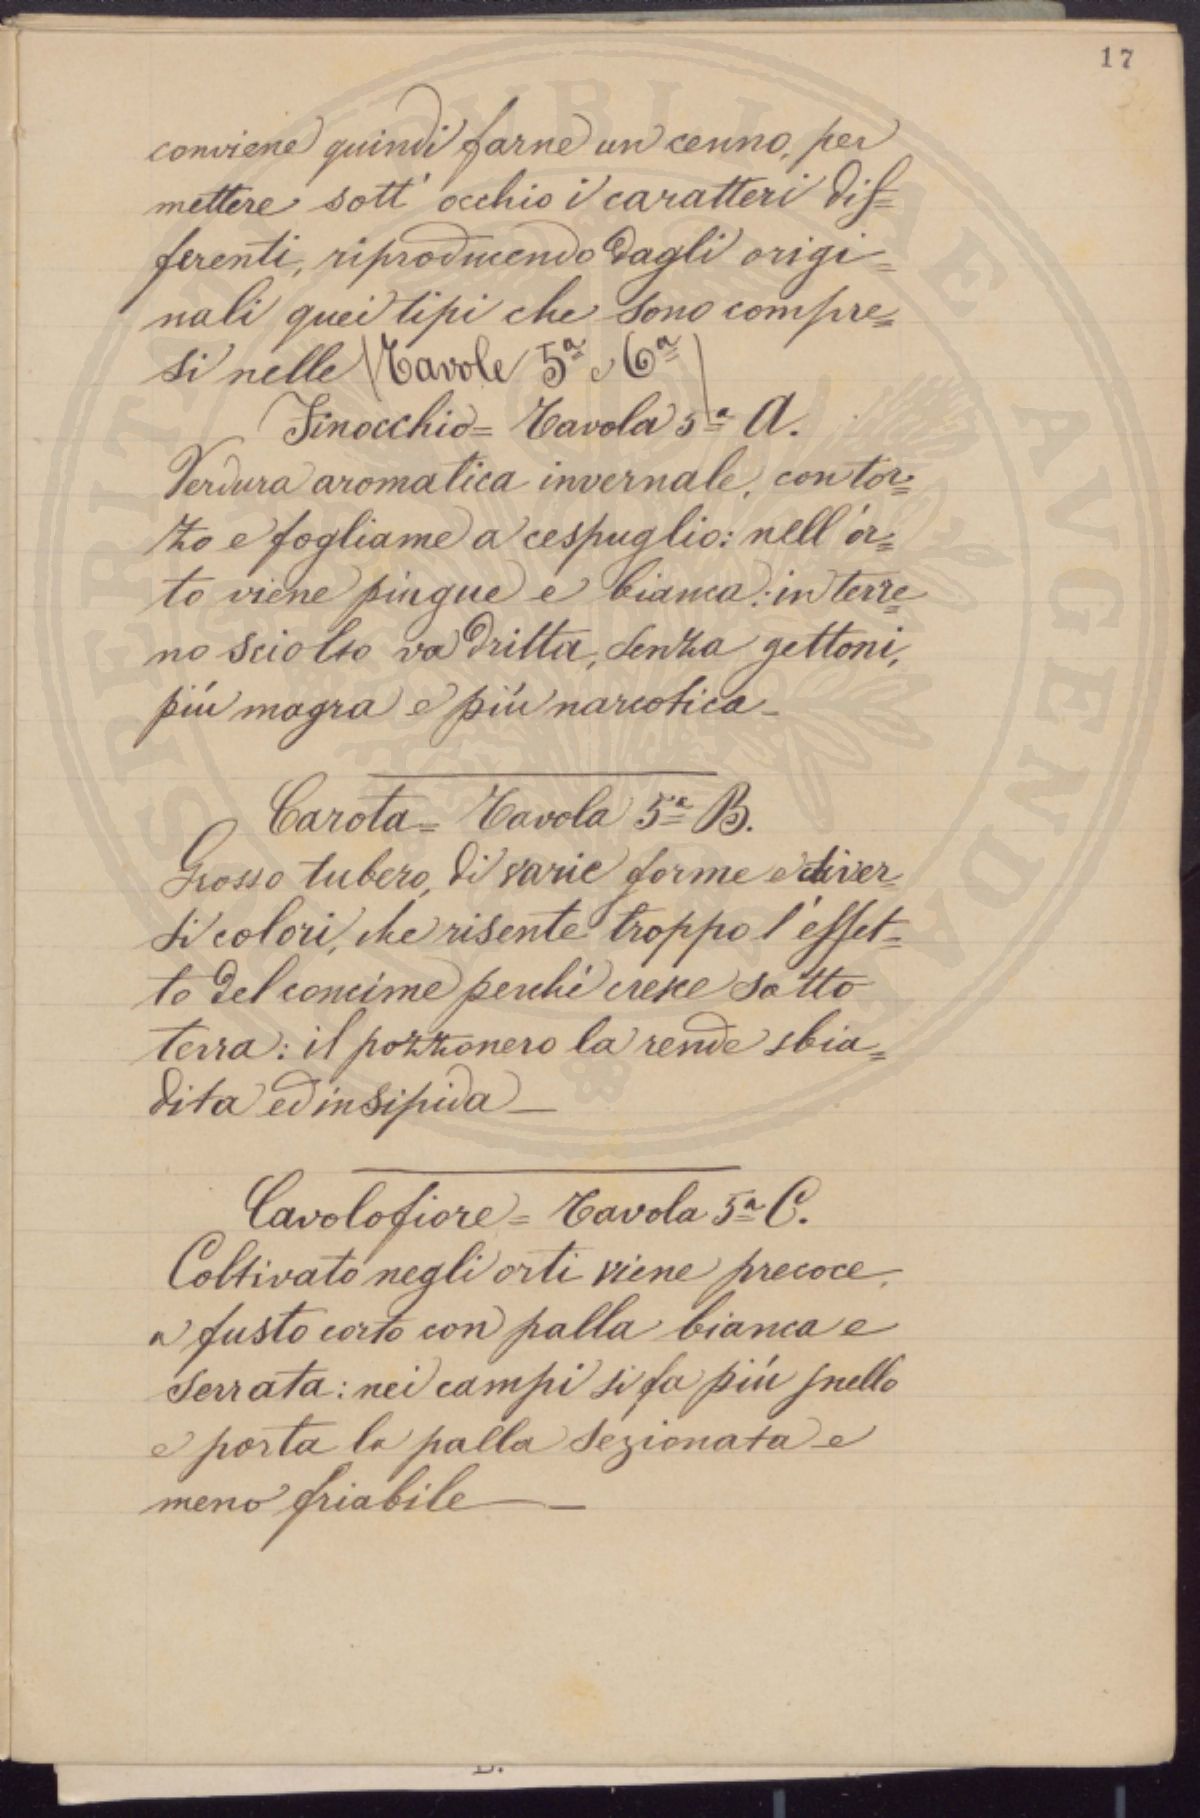 17
conviene quindi farne un cenno, per
mettere sott' occhio i caratteri dif=
ferenti, riproducendo dagli origi=
nali quei tipi che sono compre=
si nelle (Tavole 5ª e 6ª)
Finocchio = Tavola 5ª A.
Verdura aromatica invernale, con tor=
zo e fogliame a cespuglio: nell'or=
to viene pingue e bianca: in terre=
no sciolto va dritta, senza gettoni,
più magra e più narcotica_
Carota = Tavola 5ª B.
Grosso tubero, di varie forme e diver=
si colori, che risente troppo l'effet=
to del concime perché cresce sotto
terra: il pozzonero la rende sbia=
dita ed insipida_
Cavolofiore = Tavola 5ª C.
Coltivato negli orti viene precoce,
a fusto corto con palla bianca e
serrata: nei campi si fa più snello
e porta la palla sezionata e
meno friabile_
PUBLICAE AVGENDAE PROSPERITATI